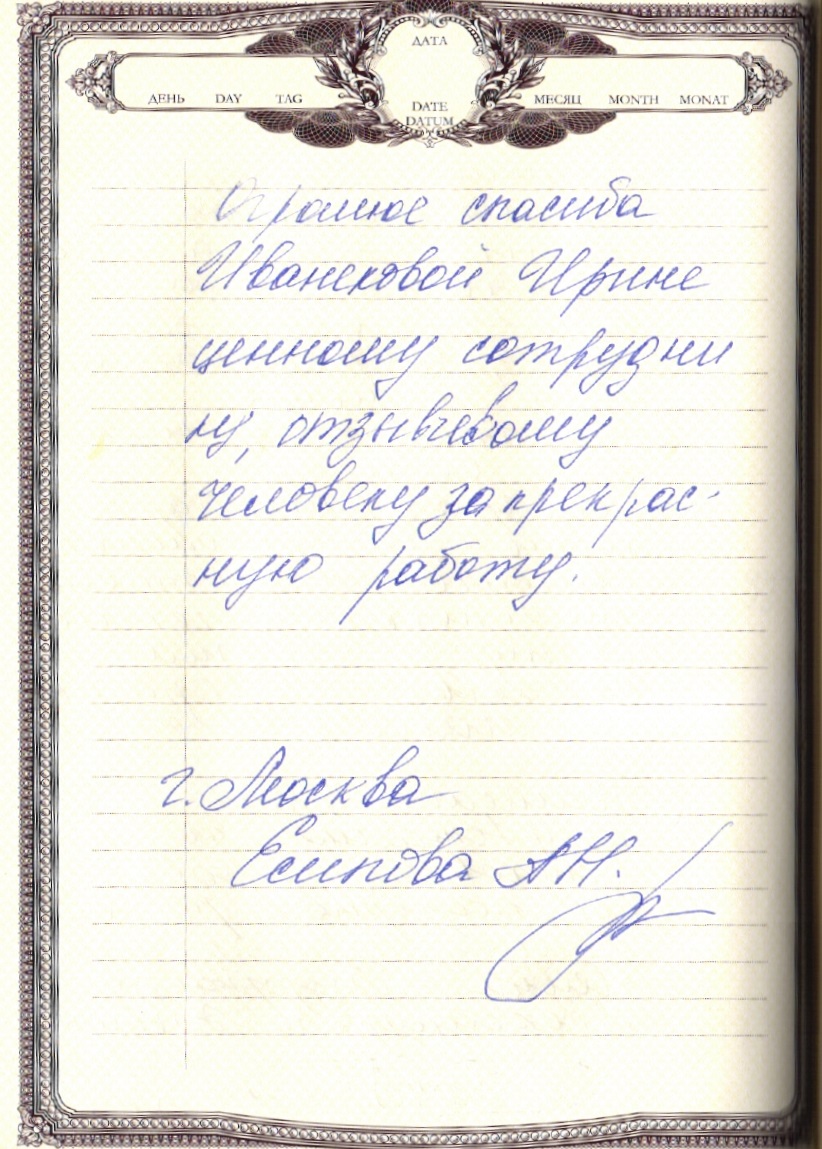 ДАТА
ДЕНЬ DAY TAG
DATE
DATUM
МЕСЯЦ MONTH MONAT
Огромное спасиба
Иванековой Ирине
ценному сотрудни
ку, отзывчевому
человеку за прекрас-
ную работу.
г. Москва
Есипова А.Н.